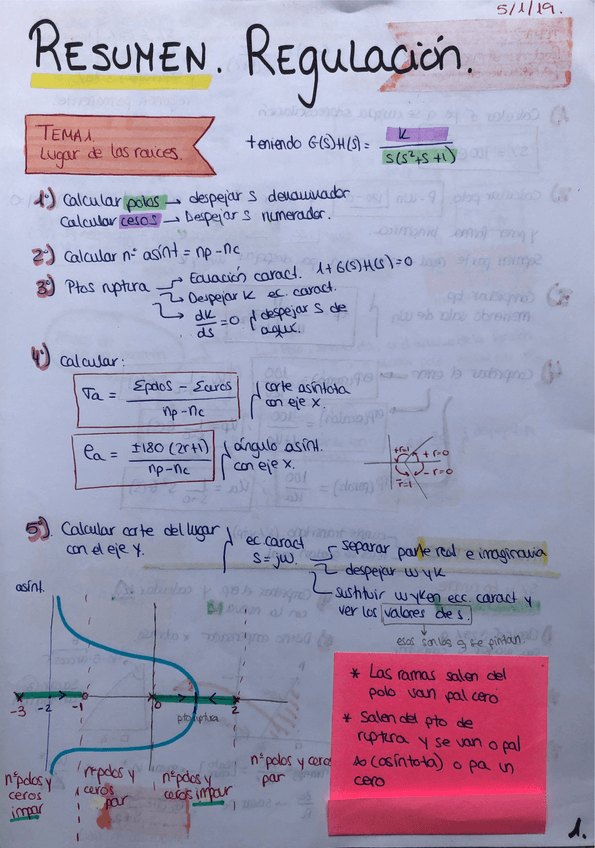 5/1/19.
RESUMEN. REgulación.
TEMA1.
Lugar de las raíces.
teniendo G(S)H(S) = K / S(S²+S+1)
1º) Calcular polos → despejar S denominador
Calcular ceros → Despejar S numerador.
2º) Calcular nº asínt = np - nc
3º) Ptos ruptura → Ecuación caract. 1+G(S)H(S)=0
→ Despejar K ec. caract.
→ dK/ds = 0 { despejar S de aquí.
4º) Calcular:
σa = Σpolos - Σceros / np - nc { corte asíntota
con eje x.
ρa = ±180 (2r+1) / np - nc { ángulo asínt.
con eje x.
+r=1 +r=0
-r=1 -r=0
5º) Calcular corte del lugar
con el eje Y.
ec. caract
S=jω.
separar parte real e imaginaria
despejar ω y K
sustituir ω y K en ecc. caract y
ver los valores de s.
esos son los q se pintan.
asínt.
-3 -2 -1 0 2
pto ruptura
nº polos y
ceros
impar
nº polos y
ceros
par
nº polos y
ceros impar
nº polos y ceros
par
* Las ramas salen del
polo van pal cero
* Salen del pto de
ruptura y se van o pal
∞ (asíntota) o pa un
cero
1.